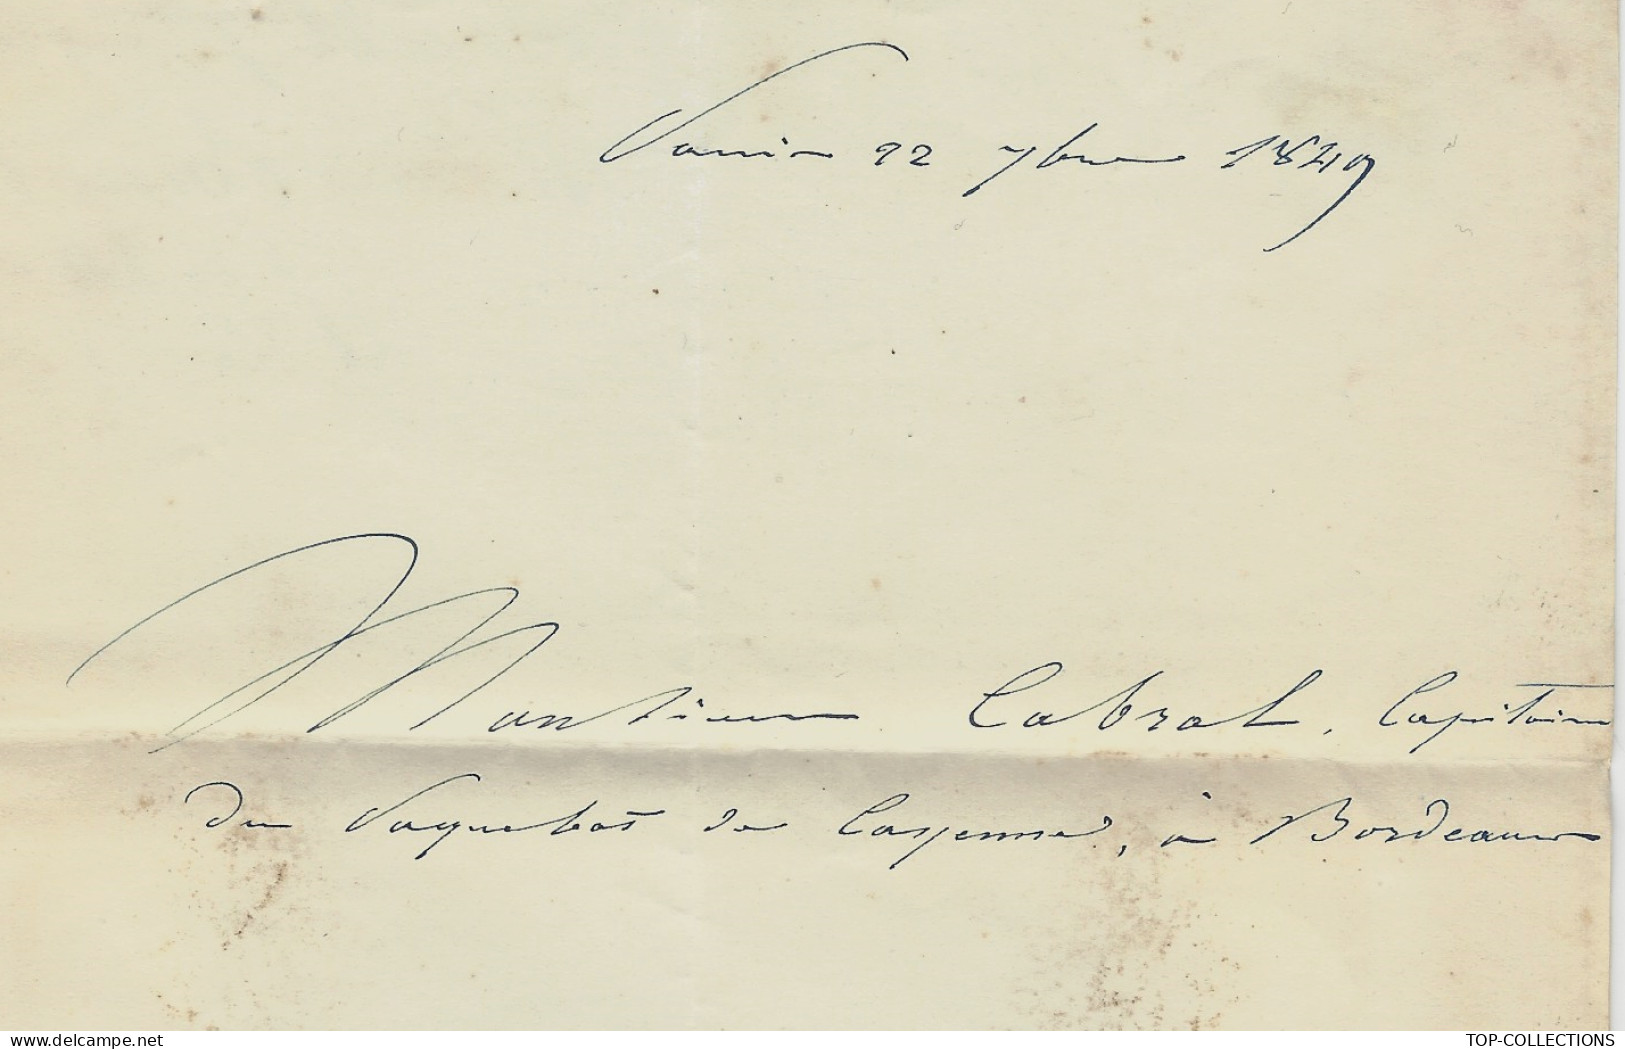 Paris 22 7bre 1849
Monsieur Cabrol, Capitaine
du Paquebot de Cayenne, à Bordeaux
www.delcampe.net
TOP-COLLECTIONS